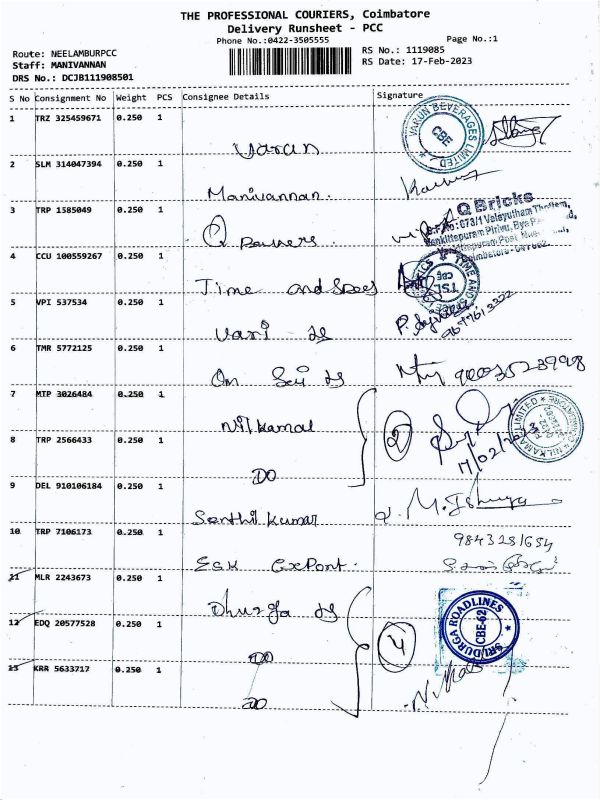 THE PROFESSIONAL COURIERS, Coimbatore
Delivery Runsheet - PCC
Phone No.:0422-3505555
Page No.:1
Route: NEELAMBURPCC
Staff: MANIVANNAN
DRS No.: DCJB111908501
RS No.: 1119085
RS Date: 17-Feb-2023
S No Consignment No Weight PCS Consignee Details Signature
1 TRZ 325459671 0.250 1
Varun
VARUN BEVERAGES LIMITED
CBE
2 SLM 314047394 0.250 1
Manivannan.
3 TRP 1585049 0.250 1
Q Bakers.
Q Bricks
S.F.No:673/1 Velayutham Thottam,
4 CCU 100559267 0.250 1
Time and Spees
TIME AND
TSL
CBE
5 VPI 537534 0.250 1
Vari
9677613322
6 TMR 5772125 0.250 1
On Sai
9003523998
7 MTP 3026484 0.250 1
Nilkamal
2
NILKAMAL LIMITED
17/02/2023
8 TRP 2566433 0.250 1
DO
9 DEL 910106184 0.250 1
Senthil kumar
10 TRP 7106173 0.250 1
ESK Export.
9843281654
11 MLR 2243673 0.250 1
Dhurga
12 EDQ 20577528 0.250 1
DO
4
SRI DURGA ROADLINES
CBE-62
13 KRR 5633717 0.250 1
DO